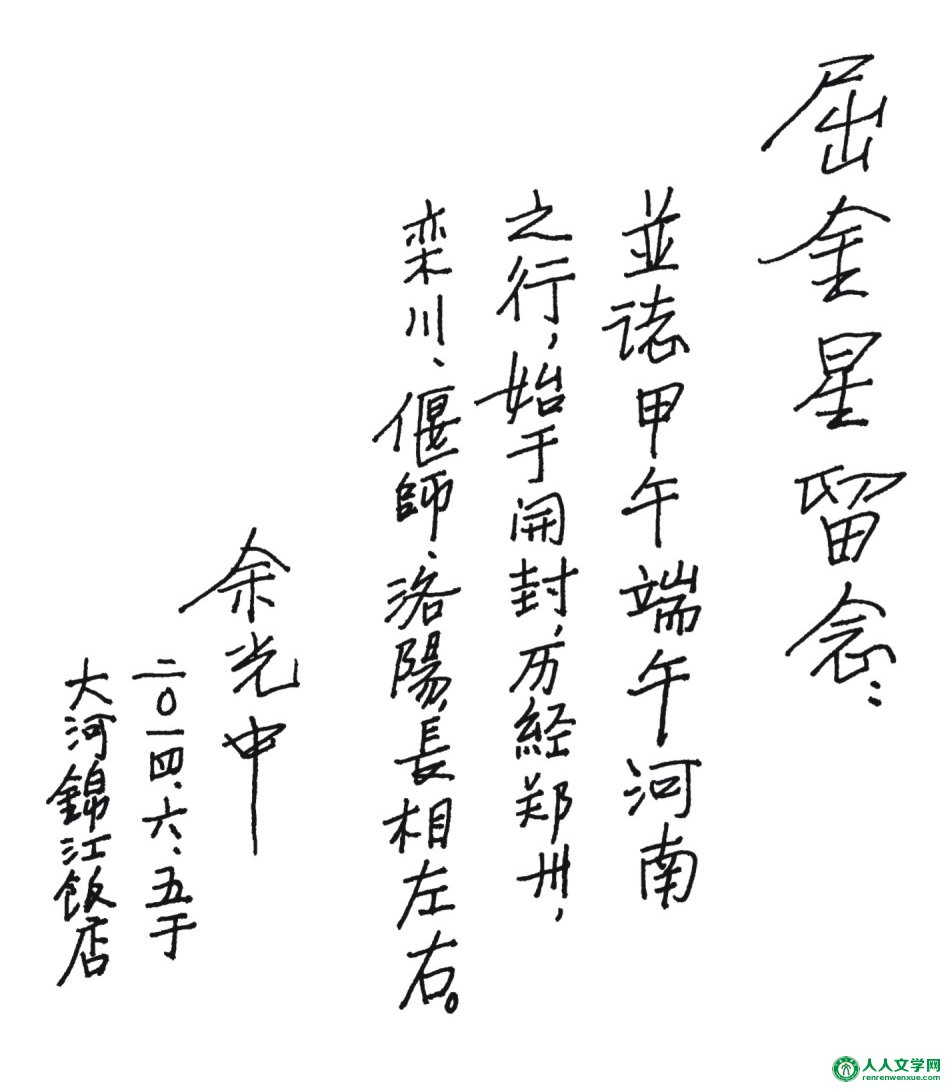 屈金星留念：
並誌甲午端午河南
之行，始于開封，历經郑州，
栾川、偃師、洛陽，長相左右。
余光中
二〇一四、六、五于
大河錦江飯店
人人文学网
renrenwenxue.com